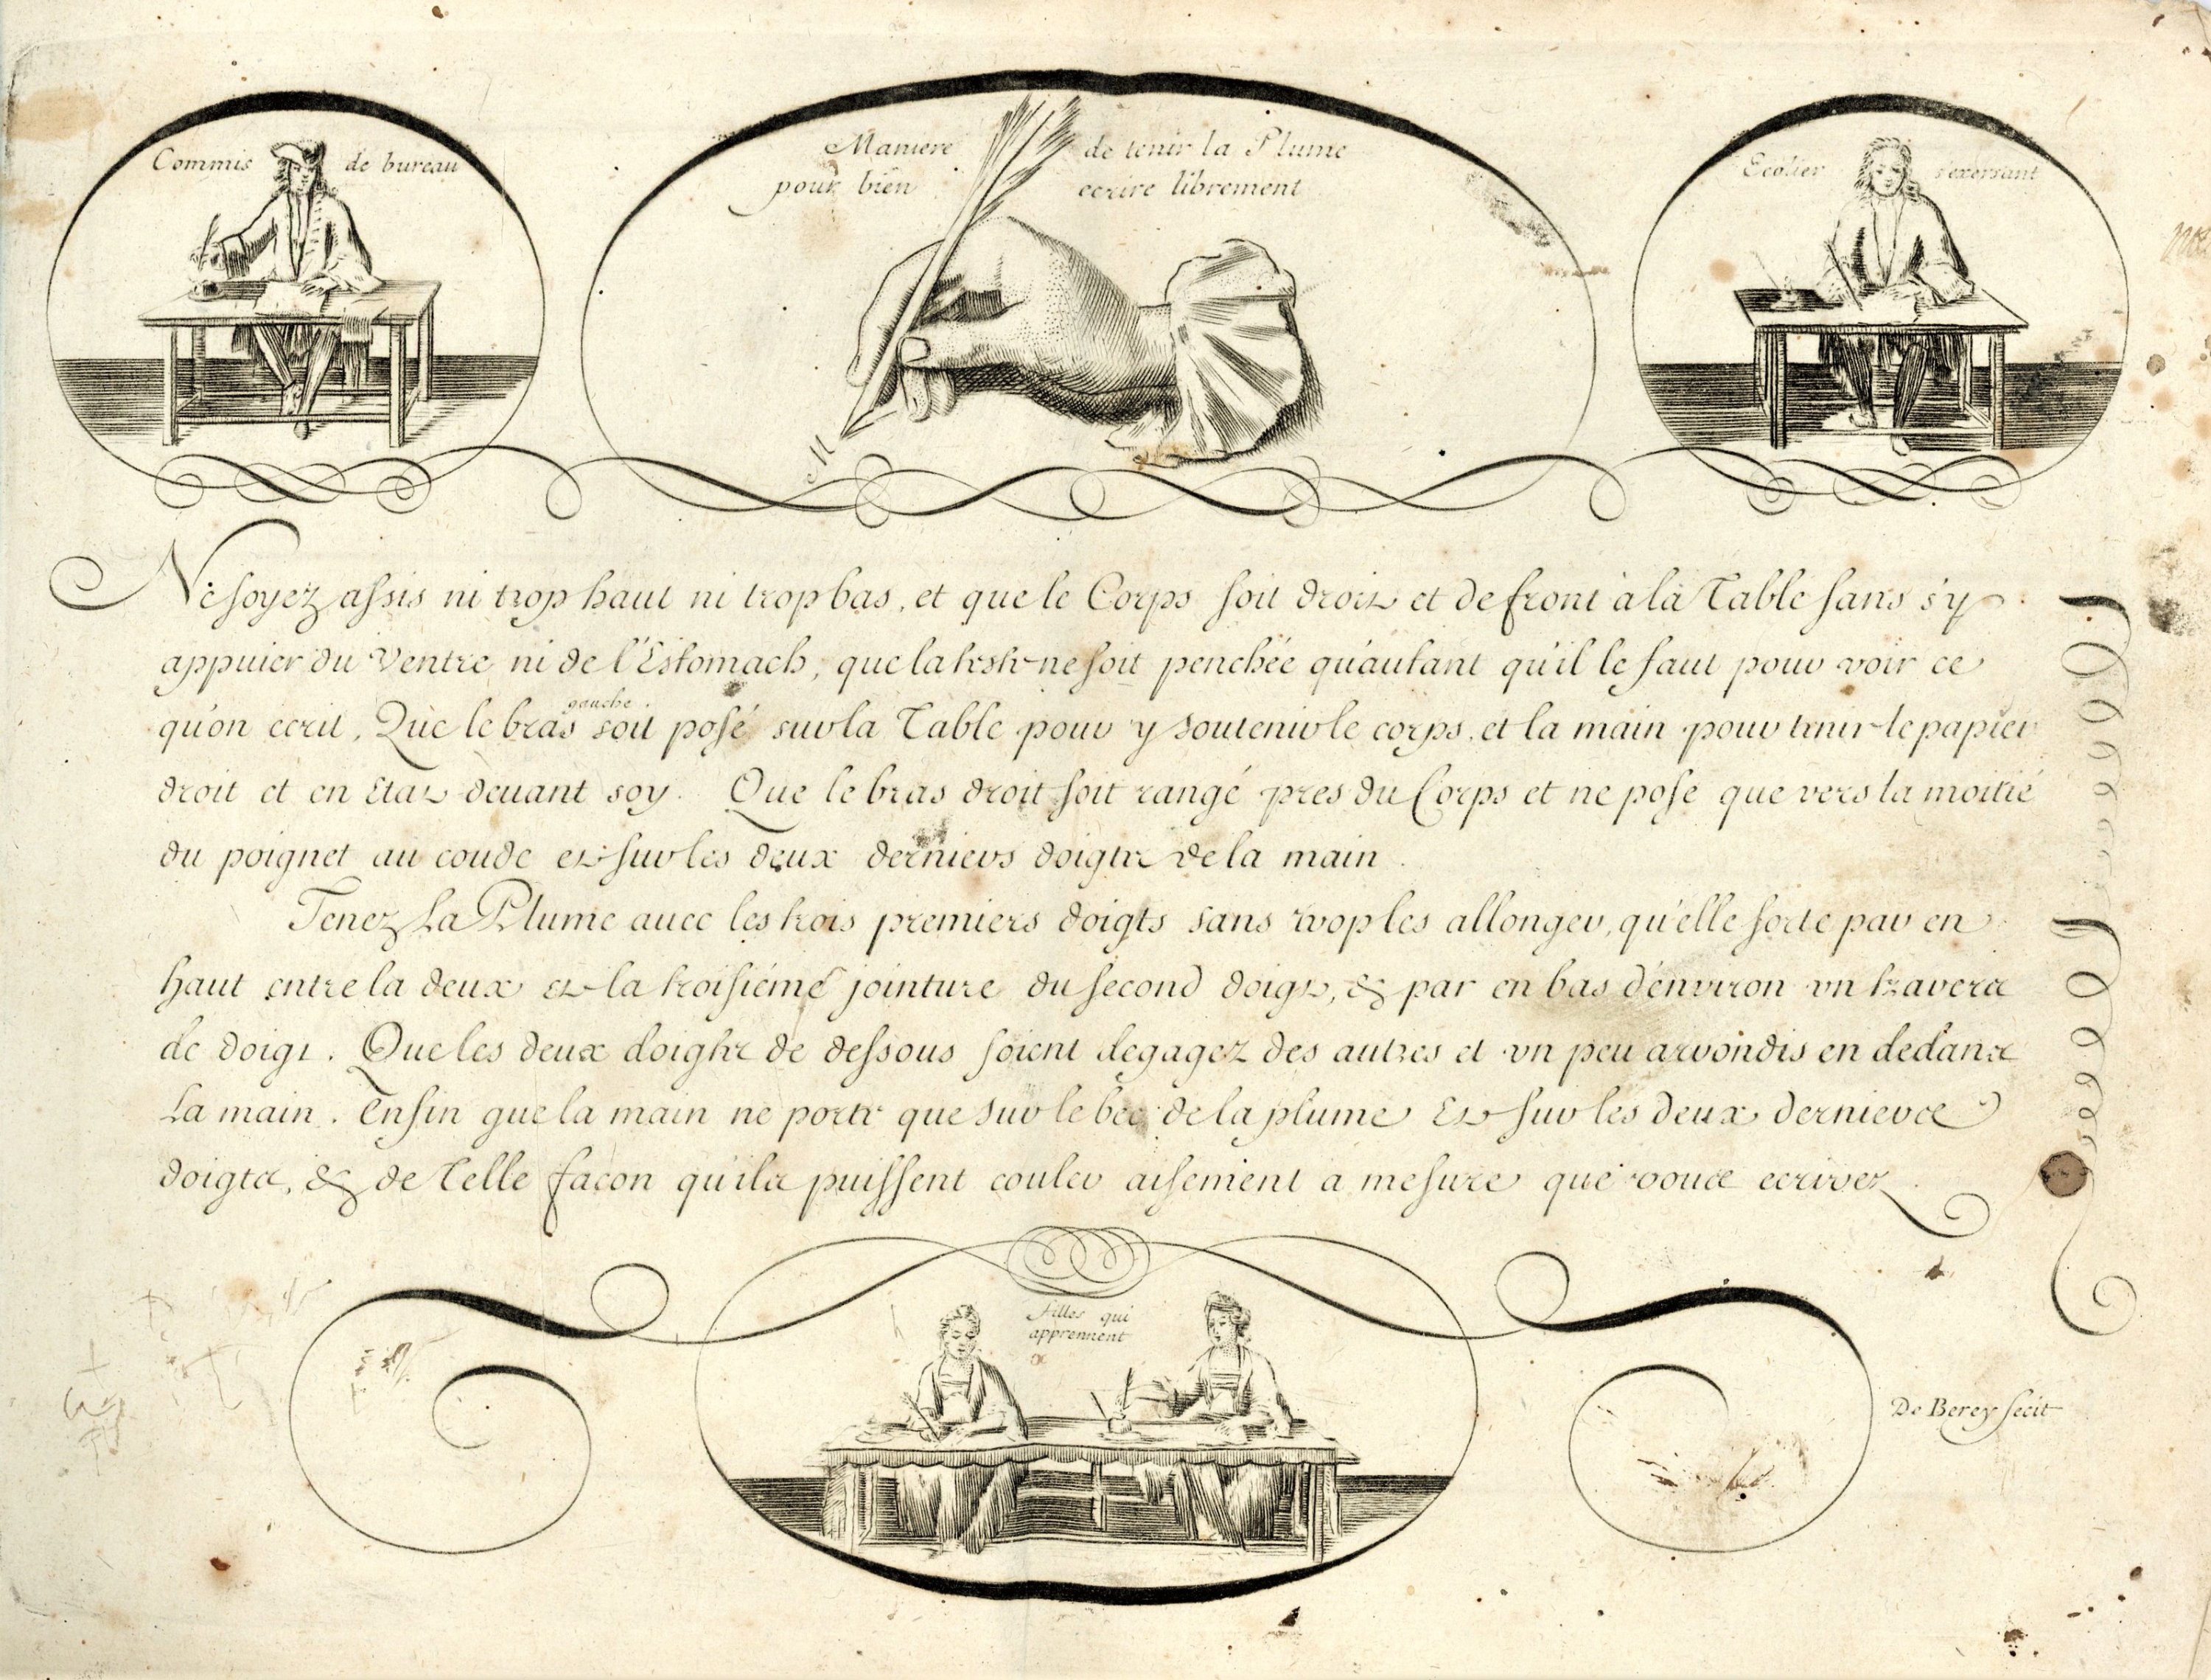 Commis de bureau
Maniere de tenir la Plume
pour bien ecrire librement
Ecolier s'exersant
Ne soyez assis ni trop haut ni trop bas, et que le Corps soit droit et de front à la Table sans s'y
appuier du Ventre ni de l'Estomach, que la teste ne soit penchée qu'autant qu'il le faut pour voir ce
qu'on ecrit, Que le bras gauche soit posé sur la Table pour y soutenir le corps, et la main pour tenir le papier
droit et en Etat deuant soy. Que le bras droit soit rangé pres du Corps et ne pose que vers la moitié
du poignet au coude et sur les deux derniers doigts de la main.
Tenez La Plume auec les trois premiers doigts sans trop les allonger, qu'elle sorte par en
haut entre la deux et la troisiéme jointure du second doigt, & par en bas d'environ vn travers
de doigt. Que les deux doigts de dessous soient degagez des autres et vn peu arrondis en dedans
La main. Enfin que la main ne porte que sur le bec de la plume Et sur les deux derniers
doigts, & de Telle façon qu'ils puissent couler aisement a mesure que vous ecrivez
Filles qui
apprennent
De Berey fecit